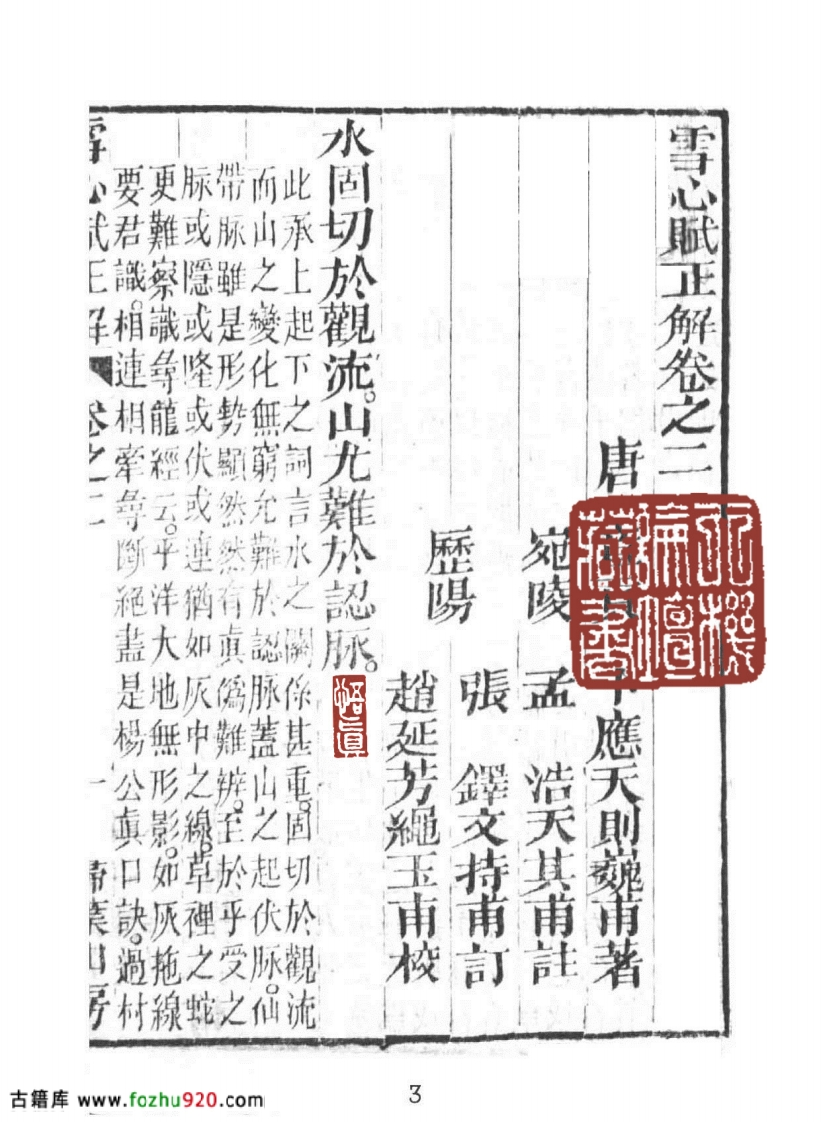 雪心賦正解卷之二
唐 應天則巍甫著
宛陵 孟 浩天其甫註
張 鐸文持甫訂
歷陽
趙延芳繩玉甫校
水固切於觀流。山尤難於認脉。
悟真
此承上起下之詞言水之關係甚重。固切於觀流
而山之變化無窮尤難於認脉蓋山之起伏脉。仙
帶脉雖是形勢顯然然有真偽難辨。至於乎受之
脉或隱或隆或伏或連猶如灰中之線。草裡之蛇
更難察識尋龍經云。平洋大地無形影。如灰拖線
要君識。相連相牽尋斷絕盡是楊公真口訣。過村
雪心賦正解 卷之二 一 掃葉山房
論壇藏書
古籍库 www.fozhu920.com
3